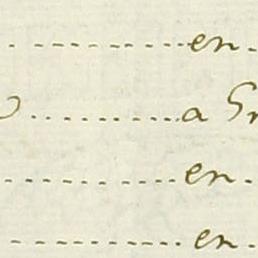 en
a
en
en